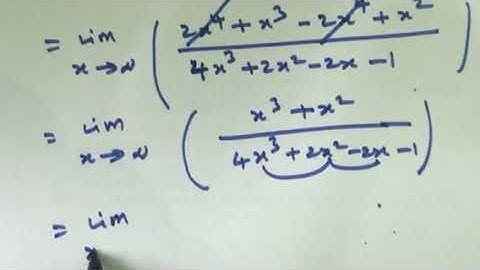 = lim x→∞ ( (2x⁴ + x³ - 2x⁴ + x²) / (4x³ + 2x² - 2x - 1) )
= lim x→∞ ( (x³ + x²) / (4x³ + 2x² - 2x - 1) )
= lim x